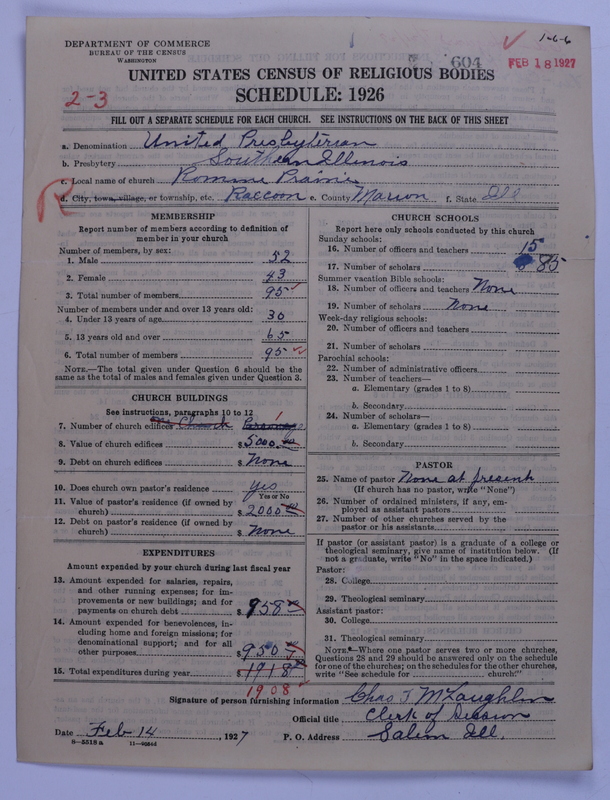 1-6-6
DEPARTMENT OF COMMERCE
BUREAU OF THE CENSUS
WASHINGTON
604
FEB 18 1927
UNITED STATES CENSUS OF RELIGIOUS BODIES
SCHEDULE: 1926
2-3
FILL OUT A SEPARATE SCHEDULE FOR EACH CHURCH. SEE INSTRUCTIONS ON THE BACK OF THIS SHEET
a. Denomination United Presbyterian
b. Presbytery Southern Illinois
c. Local name of church Romine Prairie
R
d. City, town, village, or township, etc. Raccoon e. County Marion f. State Ill
MEMBERSHIP
Report number of members according to definition of
member in your church
Number of members, by sex:
1. Male 52
2. Female 43
3. Total number of members 95
Number of members under and over 13 years old:
4. Under 13 years of age 30
5. 13 years old and over 65
6. Total number of members 95
NOTE.—The total given under Question 6 should be
same as the total of males and females given under Question 3.
CHURCH BUILDINGS
See instructions, paragraphs 10 to 12
7. Number of church edifices One Church 1
8. Value of church edifices $ 5000.00
9. Debt on church edifices $ None
10. Does church own pastor's residence yes
Yes or No
11. Value of pastor's residence (if owned by
church) $ 2000.00
12. Debt on pastor's residence (if owned by
church) $ None
EXPENDITURES
Amount expended by your church during last fiscal year
13. Amount expended for salaries, repairs,
and other running expenses; for im-
provements or new buildings; and for
payments on church debt $ 958
14. Amount expended for benevolences, in-
cluding home and foreign missions; for
denominational support; and for all
other purposes $ 950
15. Total expenditures during year $ 1918
1908
CHURCH SCHOOLS
Report here only schools conducted by this church
Sunday schools:
16. Number of officers and teachers 15
17. Number of scholars 85
Summer vacation Bible schools:
18. Number of officers and teachers None
19. Number of scholars None
Week-day religious schools:
20. Number of officers and teachers
21. Number of scholars
Parochial schools:
22. Number of administrative officers
23. Number of teachers—
a. Elementary (grades 1 to 8)
b. Secondary
24. Number of scholars—
a. Elementary (grades 1 to 8)
b. Secondary
PASTOR
25. Name of pastor None at present
(If church has no pastor, write "None")
26. Number of ordained ministers, if any, em-
ployed as assistant pastors
27. Number of other churches served by the
pastor or his assistants
If pastor (or assistant pastor) is a graduate of a college or
theological seminary, give name of institution below. (If
not a graduate, write "No" in the space indicated.)
Pastor:
28. College
29. Theological seminary
Assistant pastor:
30. College
31. Theological seminary
NOTE.—Where one pastor serves two or more churches,
Questions 28 and 29 should be answered only on the schedule
for one of the churches; on the schedules for the other churches,
write "See schedule for church."
Signature of person furnishing information Chas T McLaughlin
Official title Clerk of Session
Date Feb 14, 1927 P. O. Address Salem Ill.
8-5518 a